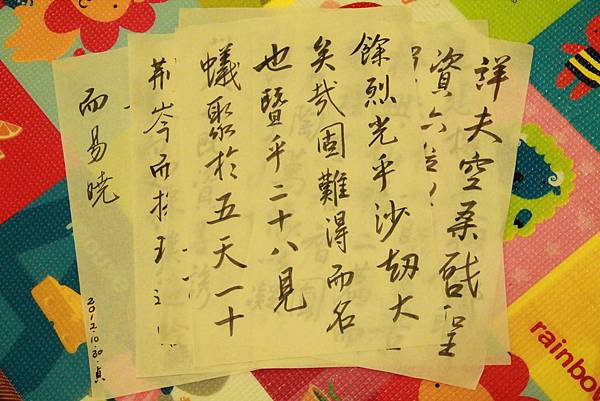 詳夫空桑啓聖
資六位
餘烈光乎沙劫大
矣哉固難得而名
也暨乎二十八見
蟻聚於五天一十
荊岑而
而易曉
2012.10.30.貞
rainbow